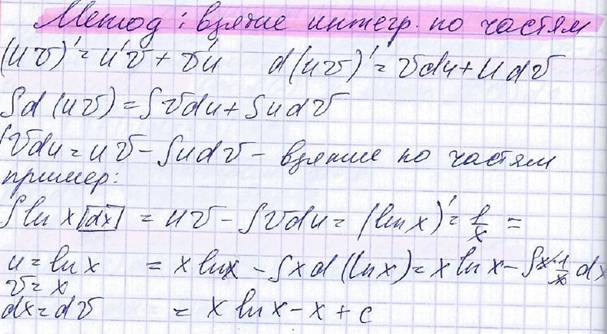 Метод: взятие интегр. по частям
(uv)' = u'v + v'u d(uv)' = vdu + udv
∫d(uv) = ∫vdu + ∫udv
∫vdu = uv - ∫udv - взятие по частям
пример:
∫ln x [dx] = uv - ∫vdu = (ln x)' = 1/x =
u = ln x = x lnx - ∫x d(ln x) = x ln x - ∫x·1/x dx
v = x
dx = dv = x ln x - x + c